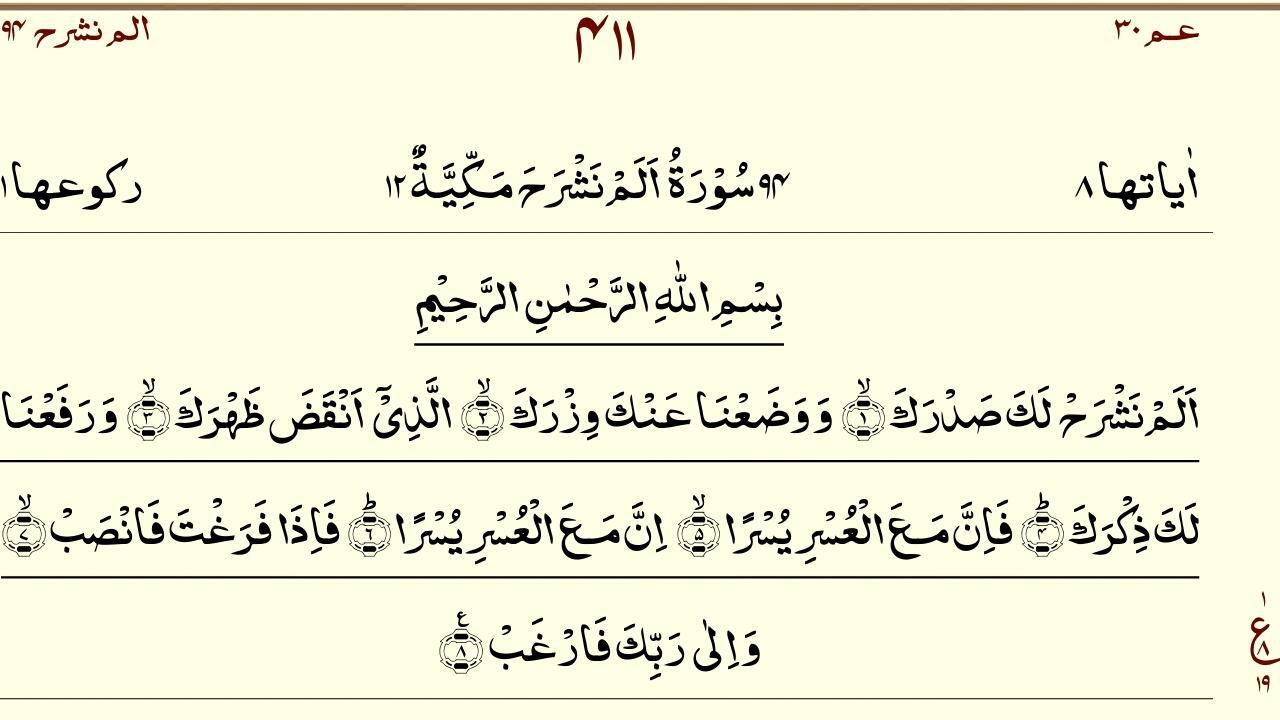 عم ۳۰ ۴۱۱ الم نشرح ۹۴
اٰیاتها ۸ ۹۴ سُوْرَةُ اَلَمْ نَشْرَحَ مَكِّیَّةٌ ۱۲ ركوعها ۱
بِسْمِ اللّٰهِ الرَّحْمٰنِ الرَّحِیْمِ
اَلَمْ نَشْرَحْ لَكَ صَدْرَكَ ۙ‏﴿۱﴾ وَ وَضَعْنَا عَنْكَ وِزْرَكَ ۙ‏﴿۲﴾ الَّذِیْۤ اَنْقَضَ ظَهْرَكَ ۙ‏﴿۳﴾ وَ رَفَعْنَا
لَكَ ذِكْرَكَ ؕ‏﴿۴﴾ فَاِنَّ مَعَ الْعُسْرِ یُسْرًا ۙ‏﴿۵﴾ اِنَّ مَعَ الْعُسْرِ یُسْرًا ؕ‏﴿۶﴾ فَاِذَا فَرَغْتَ فَانْصَبْ ۙ‏﴿۷﴾
وَ اِلٰی رَبِّكَ فَارْغَبْ ﴿۸﴾ ع
۱
ع ۸
۱۹